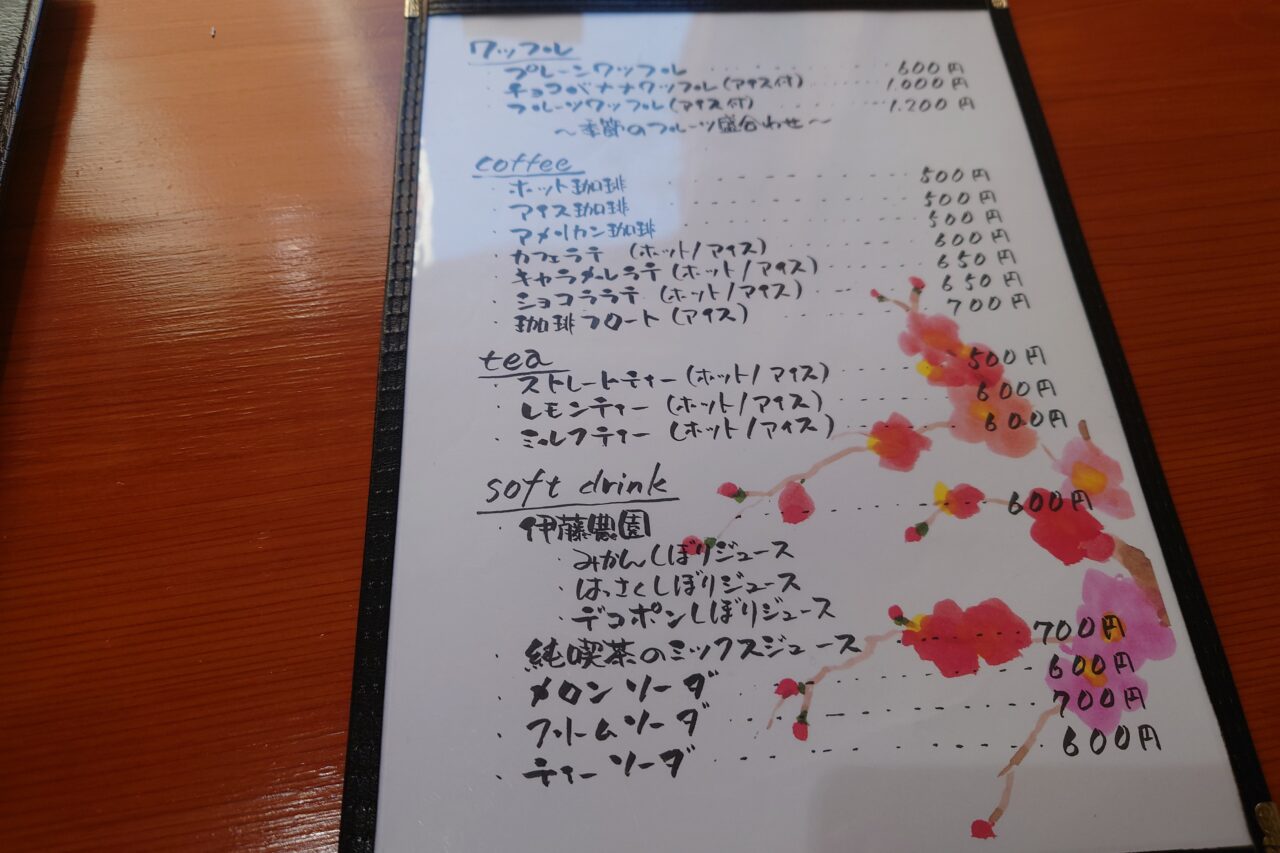 ワッフル
・プレーンワッフル ・・・ 600円
・チョコバナナワッフル(アイス付) ・・・ 1.000円
・フルーツワッフル(アイス付) ・・・ 1.200円
～季節のフルーツ盛合わせ～
coffee
・ホット珈琲 ・・・ 500円
・アイス珈琲 ・・・ 500円
・アメリカン珈琲 ・・・ 500円
・カフェラテ (ホット/アイス) ・・・ 600円
・キャラメルラテ (ホット/アイス) ・・・ 650円
・ショコララテ (ホット/アイス) ・・・ 650円
・珈琲フロート (アイス) ・・・ 700円
tea
・ストレートティー (ホット/アイス) ・・・ 500円
・レモンティー (ホット/アイス) ・・・ 600円
・ミルクティー (ホット/アイス) ・・・ 600円
soft drink
・伊藤農園 ・・・ 600円
・みかんしぼりジュース
・はっさくしぼりジュース
・デコポンしぼりジュース
・純喫茶のミックスジュース ・・・ 700円
・メロンソーダ ・・・ 600円
・クリームソーダ ・・・ 700円
・ティーソーダ ・・・ 600円